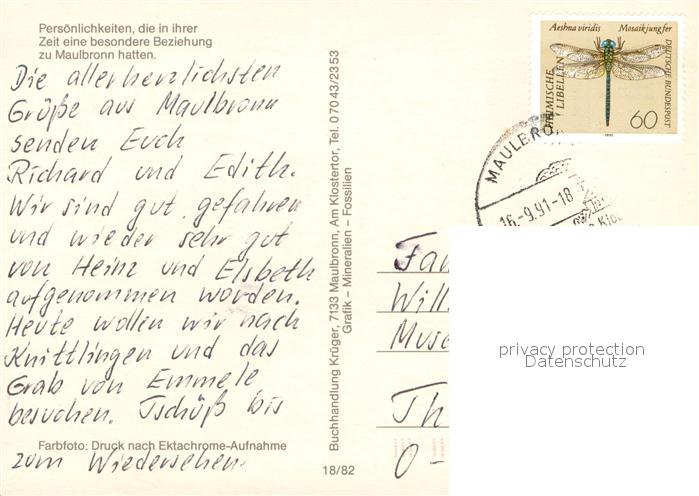 Persönlichkeiten, die in ihrer
Zeit eine besondere Beziehung
zu Maulbronn hatten.
Die allerherzlichsten
Grüße aus Maulbronn
senden Euch
Richard und Edith.
Wir sind gut gefahren
und wieder sehr gut
von Heinz und Elsbeth
aufgenommen worden.
Heute wollen wir nach
Knittlingen und das
Grab von Emmele
besuchen. Tschüß bis
Farbfoto: Druck nach Ektachrome-Aufnahme
zum Wiedersehen.
18/82
Buchhandlung Krüger, 7133 Maulbronn, Am Klostertor, Tel. 0 70 43/23 53
Grafik – Mineralien – Fossilien
Aeshna viridis Mosaikjungfer
HEIMISCHE
LIBELLEN
DEUTSCHE BUNDESPOST
60
MAULBRO
16.-9.91-18
Fam
Will
Muse
Th
O-
privacy protection
Datenschutz